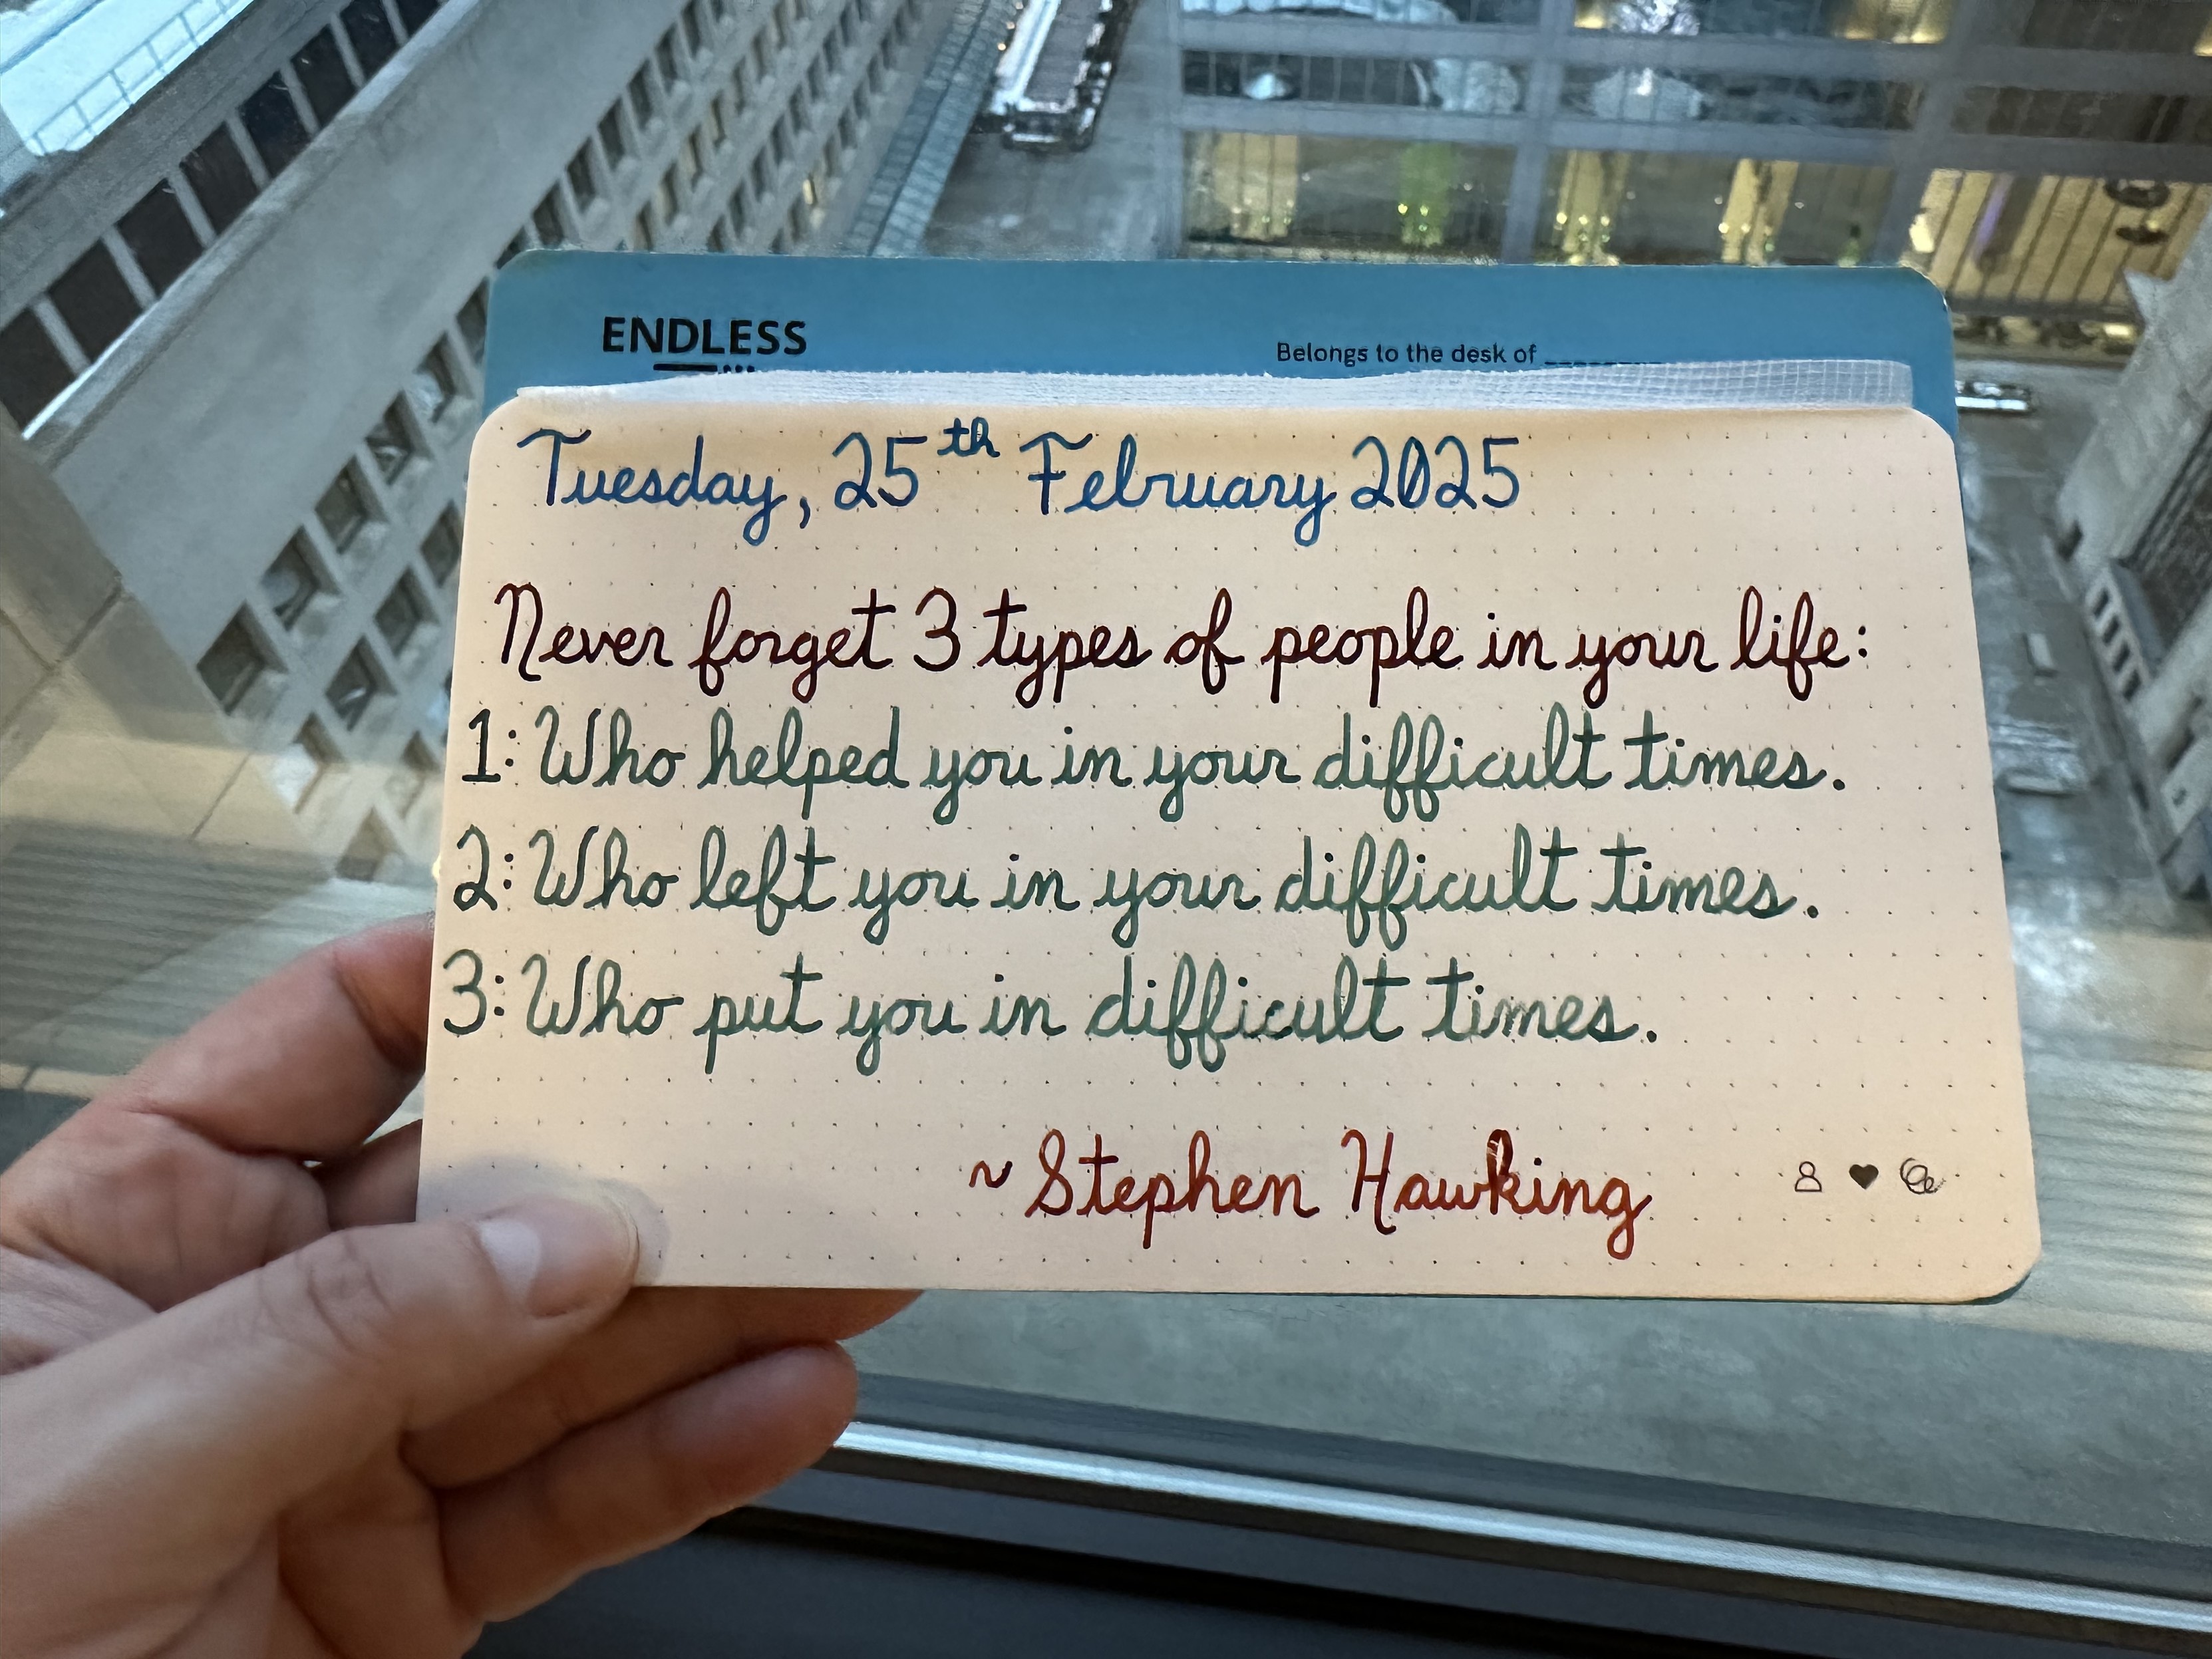 ENDLESS
Belongs to the desk of
Tuesday, 25th February 2025
Never forget 3 types of people in your life:
1: Who helped you in your difficult times.
2: Who left you in your difficult times.
3: Who put you in difficult times.
~ Stephen Hawking